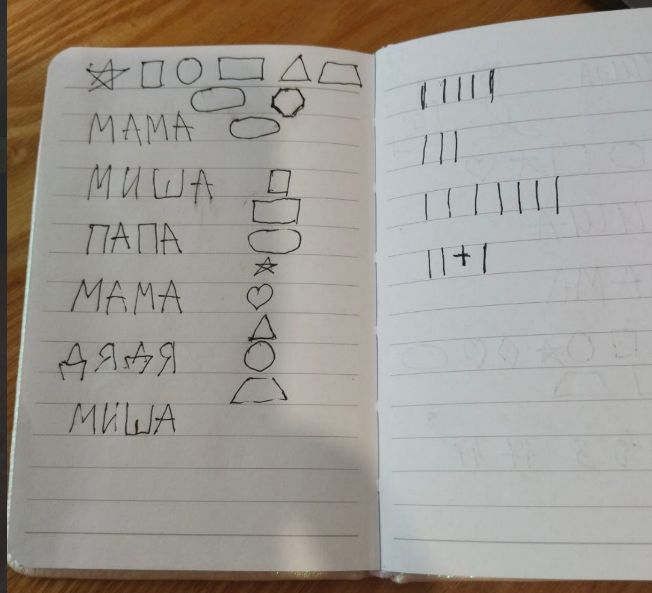 МАМА
МИША
ПАПА
МАМА
ДЯДЯ
МИША